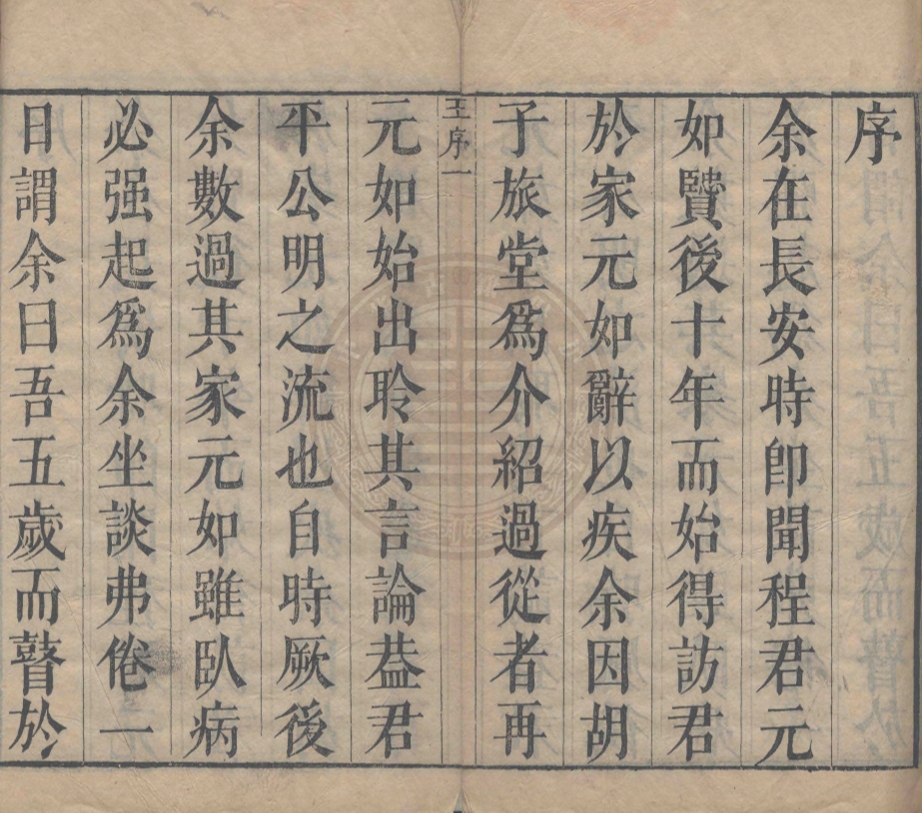 序
余在長安時卽聞程君元
如賢後十年而始得訪君
於家元如辭以疾余因胡
子旅堂爲介紹過從者再
王序一
元如始出聆其言論葢君
平公明之流也自時厥後
余數過其家元如雖臥病
必强起爲余坐談弗倦一
日謂余曰吾五歲而瞽於